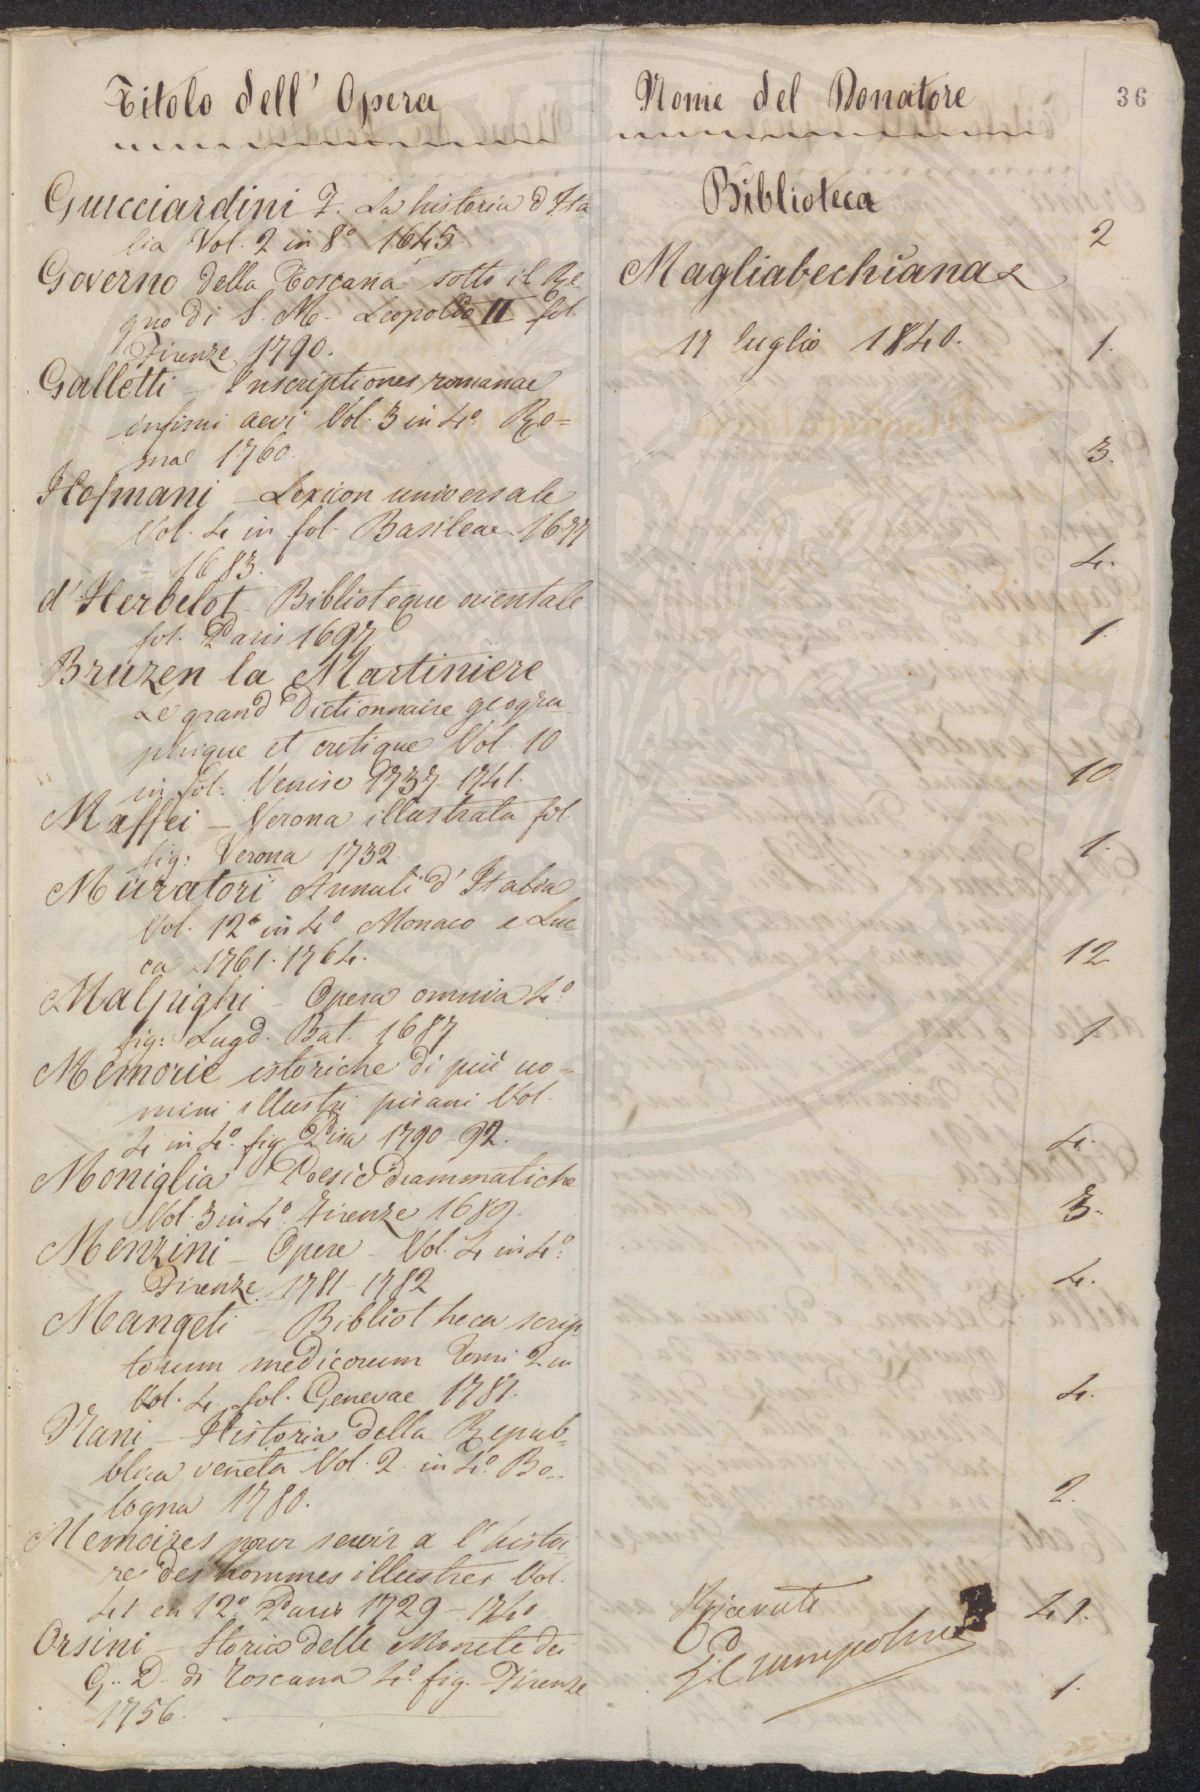 Titolo dell' Opera
Nome del Donatore
36
Guicciardini F. La historia d'Ita
lia Vol. 2 in 8° 1645
2
Governo della Toscana sotto il Re
gno di S. M. Leopoldo II fol.
Firenze 1790.
1.
Galletti – Inscriptiones romanae
infimi aevi Vol. 3 in 4° Ro=
mae 1760.
3.
Hofmani – Lexicon universale
Vol. 4 in fol. Basileae 1677
1683.
4.
d'Herbelot – Biblioteque orientale
fol. Paris 1697
1.
Bruzen la Martiniere
Le grand Dictionnaire geogra
phique et critique Vol. 10
in fol. Venise 1737. 1741.
10.
Maffei – Verona illustrata fol.
fig: Verona 1732.
1.
Muratori Annali d'Italia
Vol. 12 in 4° Monaco e Luc
ca 1761. 1764.
12
Malpighi – Opera omnia 4°
fig: Lugd. Bat. 1687.
1.
Memorie istoriche di più uo=
mini illustri pisani Vol.
4 in 4° fig Pisa 1790–92.
4.
Moniglia Poesie drammatiche
Vol. 3 in 4° Firenze 1689.
3.
Menzini – Opere – Vol. 4 in 4°
Firenze 1781–1782
4.
Mangeti – Bibliotheca scrip
torum medicorum Tomi 2 in
Vol. 4 fol. Genevae 1781.
4.
Nani – Historia della Repub=
blica veneta Vol. 2 in 4° Bo=
logna 1780.
2.
Memoires pour servir a l'histoi
re des hommes illustres Vol.
41 en 12° Paris 1729–1740
41.
Orsini – Storia delle Monete dei
G. D. di Toscana 4° fig. Firenze
1756.
1.
Biblioteca
Magliabechiana
17 luglio 1840.
Ricevuti